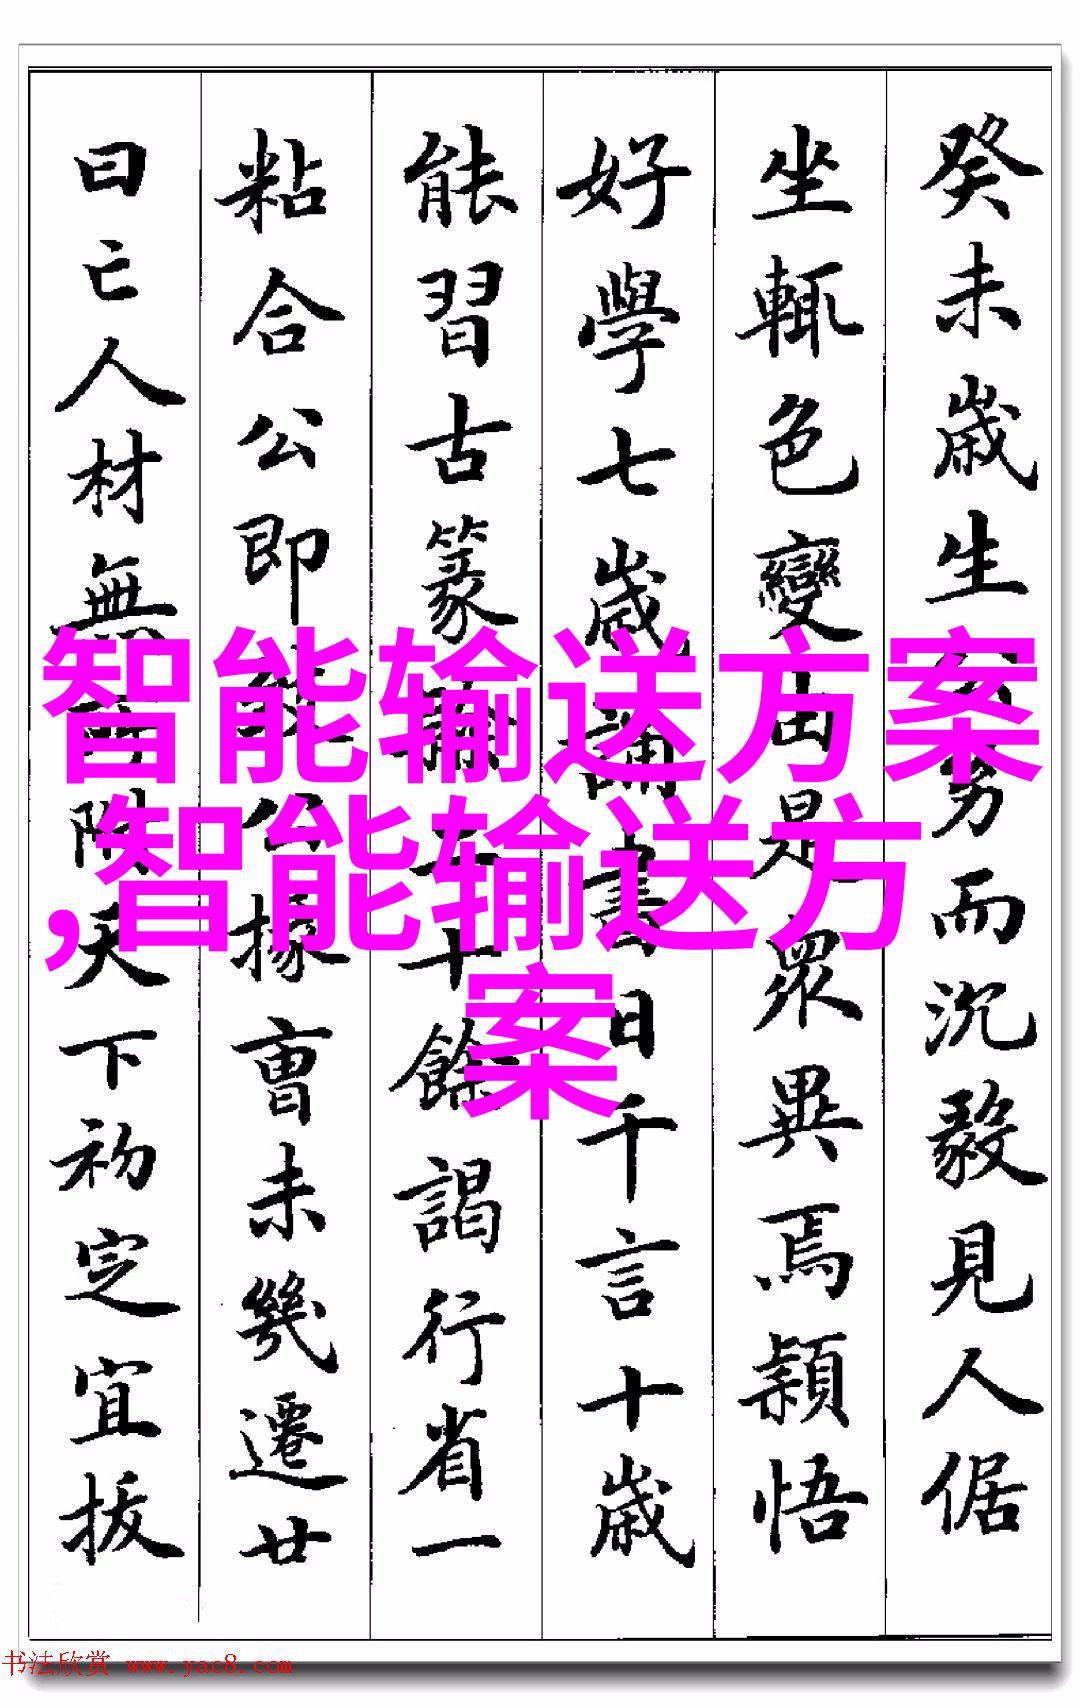 癸未歲生公勇而沉毅見人倨
坐輒色變由是眾異焉穎悟
好學七歲誦書日千言十歲
能習古篆籀二十餘謁行省一
粘合公即以公據曹未幾遷廿
曰亡人材無所附天下初定宜拔
智能输送方案
,智能输送方
案
书法欣赏 www.yac8.com